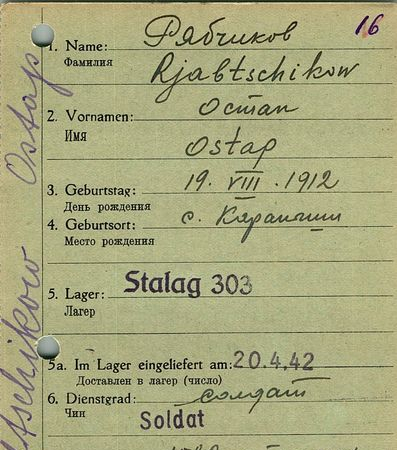 16
1. Name: Рябчиков
Фамилия Rjabtschikow
2. Vornamen: Остап
Имя Ostap
3. Geburtstag: 19. VIII. 1912
День рождения
4. Geburtsort: с.
Место рождения
5. Lager: Stalag 303
Лагер
5a. Im Lager eingeliefert am: 20.4.42
Доставлен в лагер (число)
6. Dienstgrad: солдат
Чин Soldat
tschikow Ostap